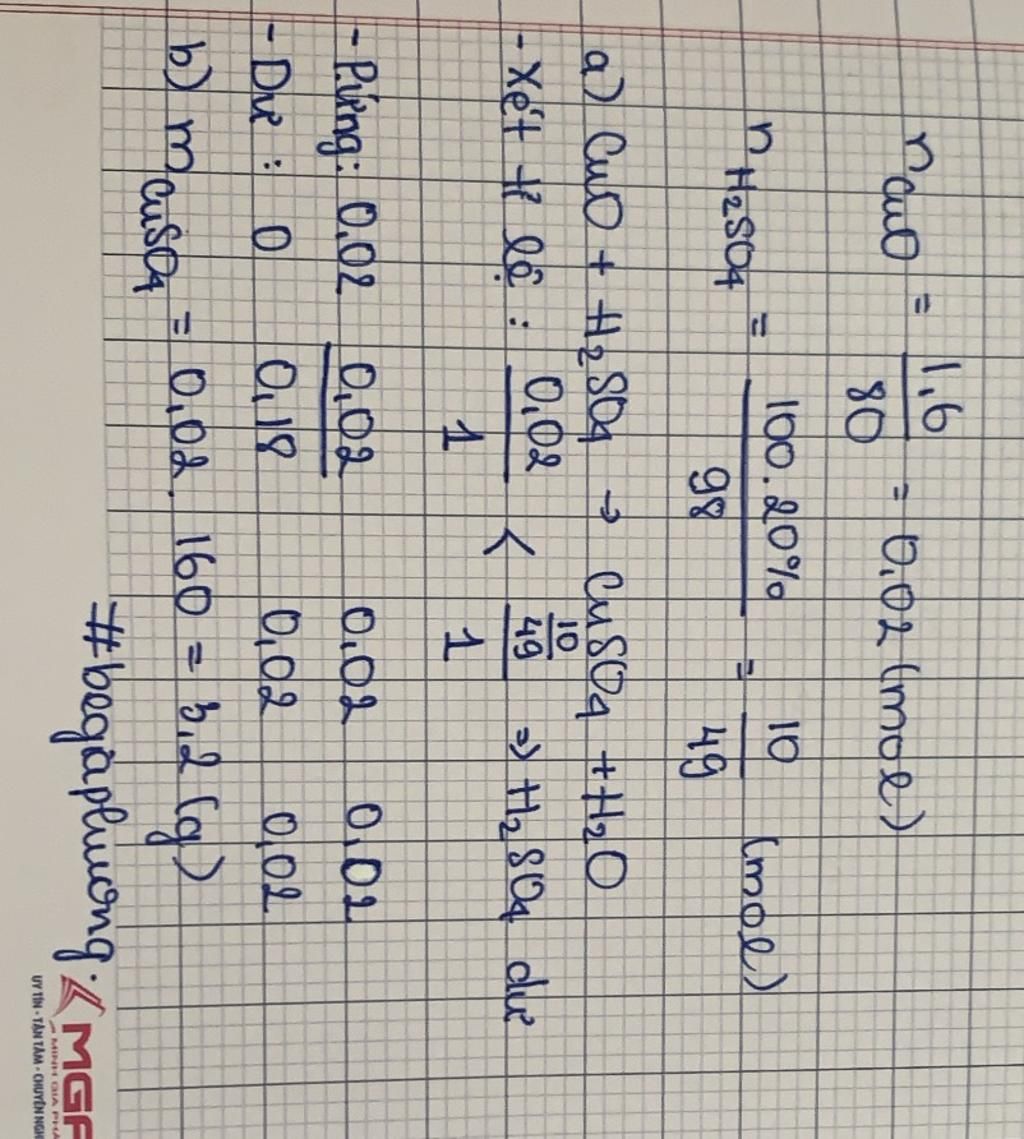 nCuO = 1,6/80 = 0,02 (mol)
nH₂SO₄ = 100.20%/98 = 10/49 (mol)
a) CuO + H₂SO₄ → CuSO₄ + H₂O
- Xét tỉ lệ: 0,02/1 < 10/49/1 => H₂SO₄ dư
- P.ứng: 0,02 0,02 0,02 0,02
- Dư: 0 0,18 0,02 0,02
b) mCuSO₄ = 0,02.160 = 3,2 (g)
#begàphuong.
MGP
MINH GIA PHÁ
UY TÍN - TẬN TÂM - CHUYÊN NGH